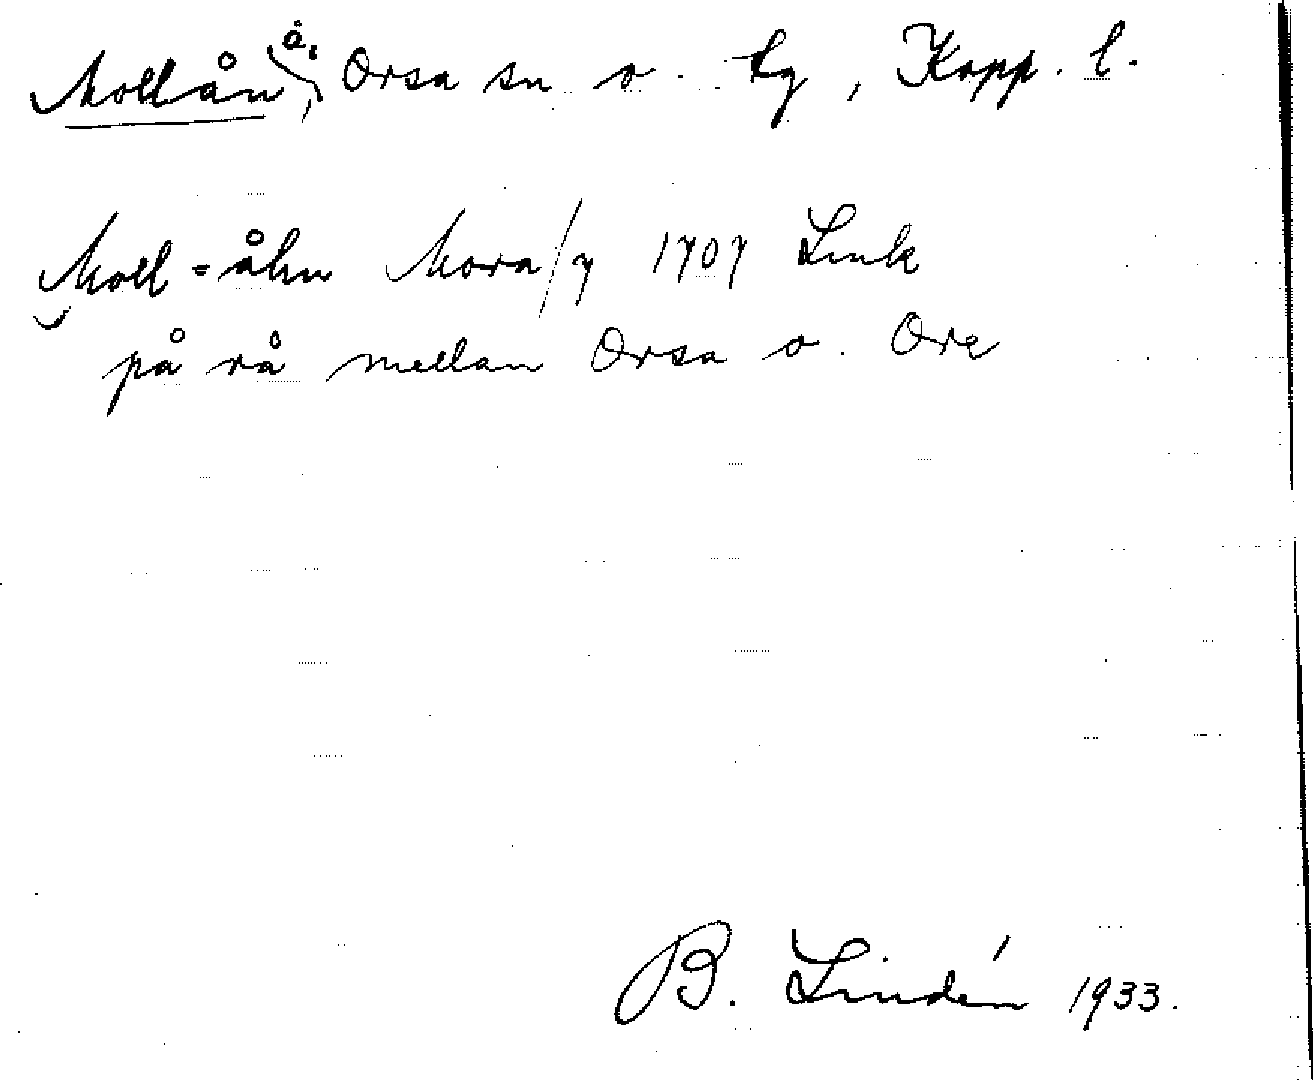 Mollån, å, Orsa sn o. tg, Kopp. l.
Moll-åhn Mora/7 1707 Link
på rå mellan Orsa o. Ore
B. Lindén 1933.